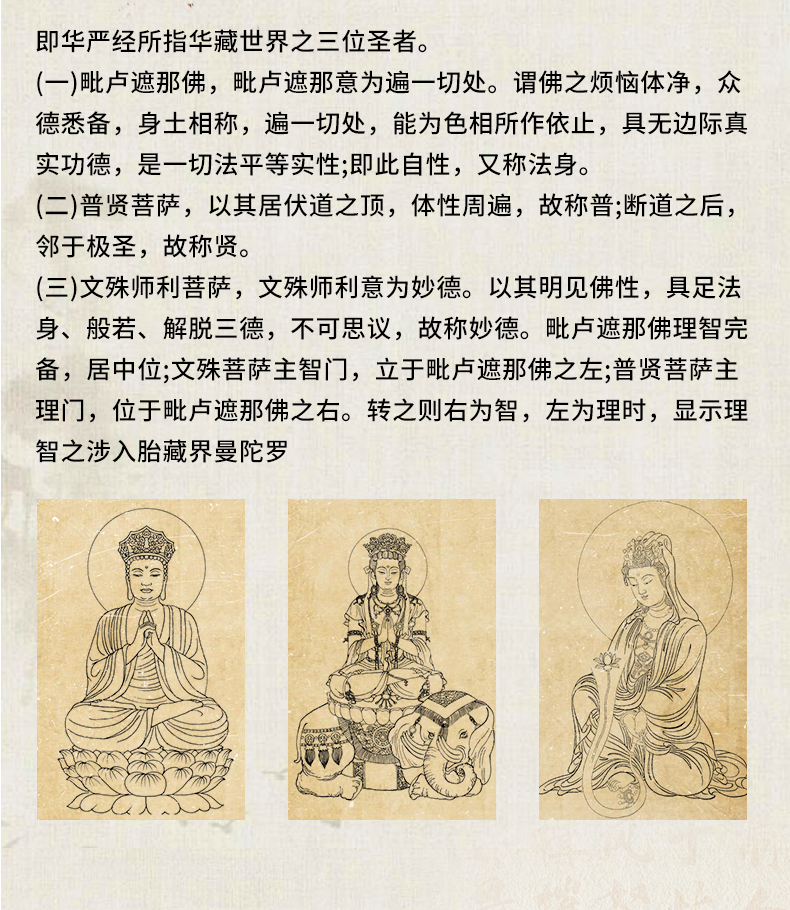 即华严经所指华藏世界之三位圣者。
(一)毗卢遮那佛，毗卢遮那意为遍一切处。谓佛之烦恼体净，众
德悉备，身土相称，遍一切处，能为色相所作依止，具无边际真
实功德，是一切法平等实性;即此自性，又称法身。
(二)普贤菩萨，以其居伏道之顶，体性周遍，故称普;断道之后，
邻于极圣，故称贤。
(三)文殊师利菩萨，文殊师利意为妙德。以其明见佛性，具足法
身、般若、解脱三德，不可思议，故称妙德。毗卢遮那佛理智完
备，居中位;文殊菩萨主智门，立于毗卢遮那佛之左;普贤菩萨主
理门，位于毗卢遮那佛之右。转之则右为智，左为理时，显示理
智之涉入胎藏界曼陀罗